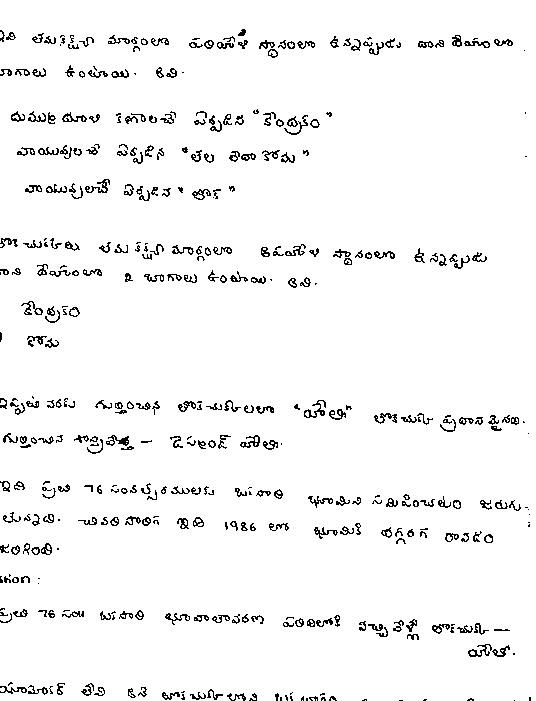 ఇవి తమ కక్ష్యా మార్గంలో పరిహేళి స్థానంలో ఉన్నప్పుడు దాని దేహంలో
భాగాలు ఉంటాయి. అవి.
దుమ్ము ధూళి కణాలచే ఏర్పడిన "కేంద్రకం"
వాయువులచే ఏర్పడిన "తల లేదా కోమా"
వాయువులచే ఏర్పడిన "తోక"
తోక చుక్కలు తమ కక్ష్యా మార్గంలో అపహేళి స్థానంలో ఉన్నప్పుడు
దాని దేహంలో 2 భాగాలు ఉంటాయి. అవి.
కేంద్రకం
కోమా
ఇప్పటి వరకు గుర్తించిన తోకచుక్కలలో "హేలి" తోకచుక్క ప్రధానమైనది.
గుర్తించిన శాస్త్రవేత్త – ఎడ్మండ్ హేలి.
ఇది ప్రతి 76 సంవత్సరములకు ఒకసారి భూమిని సమీపించటం జరుగు-
తున్నది. చివరి సారిగా ఇది 1986 లో భూమికి దగ్గరగా రావడం
జరిగింది.
ప్రతి 76 సం॥ ఒకసారి భూవాతావరణ పరిధిలోకి వచ్చి వెళ్లే తోకచుక్క –
హేలి.
లేవి అనే తోకచుక్కలోని